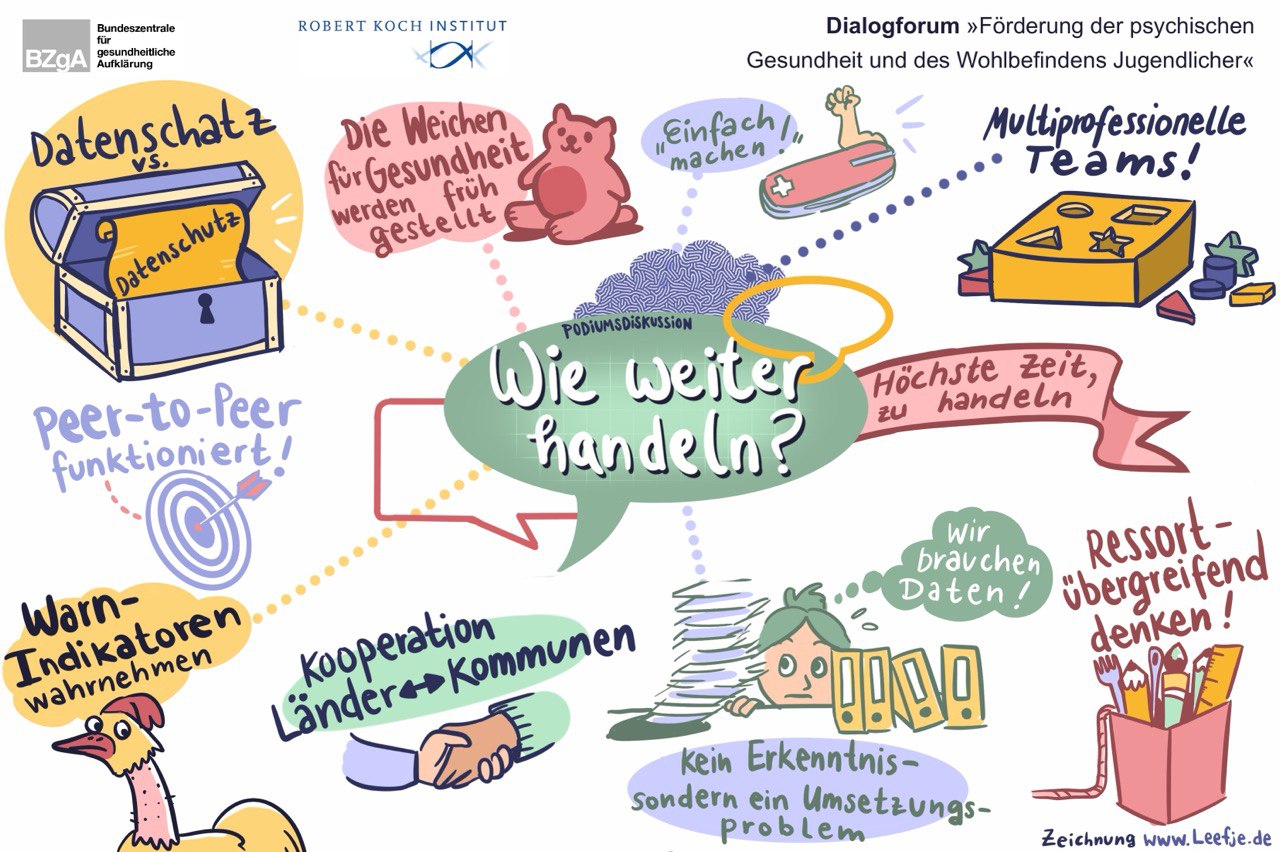 BZgA
Bundeszentrale
für
gesundheitliche
Aufklärung
ROBERT KOCH INSTITUT
Dialogforum »Förderung der psychischen
Gesundheit und des Wohlbefindens Jugendlicher«
Datenschatz
vs.
Datenschutz
Die Weichen
für Gesundheit
werden früh
gestellt
"Einfach
machen!"
Multiprofessionelle
Teams!
PODIUMSDISKUSSION
Wie weiter
handeln?
Höchste Zeit,
zu handeln
Peer-to-Peer
funktioniert!
Warn-
Indikatoren
wahrnehmen
Kooperation
Länder↔Kommunen
Wir
brauchen
Daten!
Kein Erkenntnis-
sondern ein Umsetzungs-
problem
Ressort-
übergreifend
denken!
Zeichnung www.Leefje.de